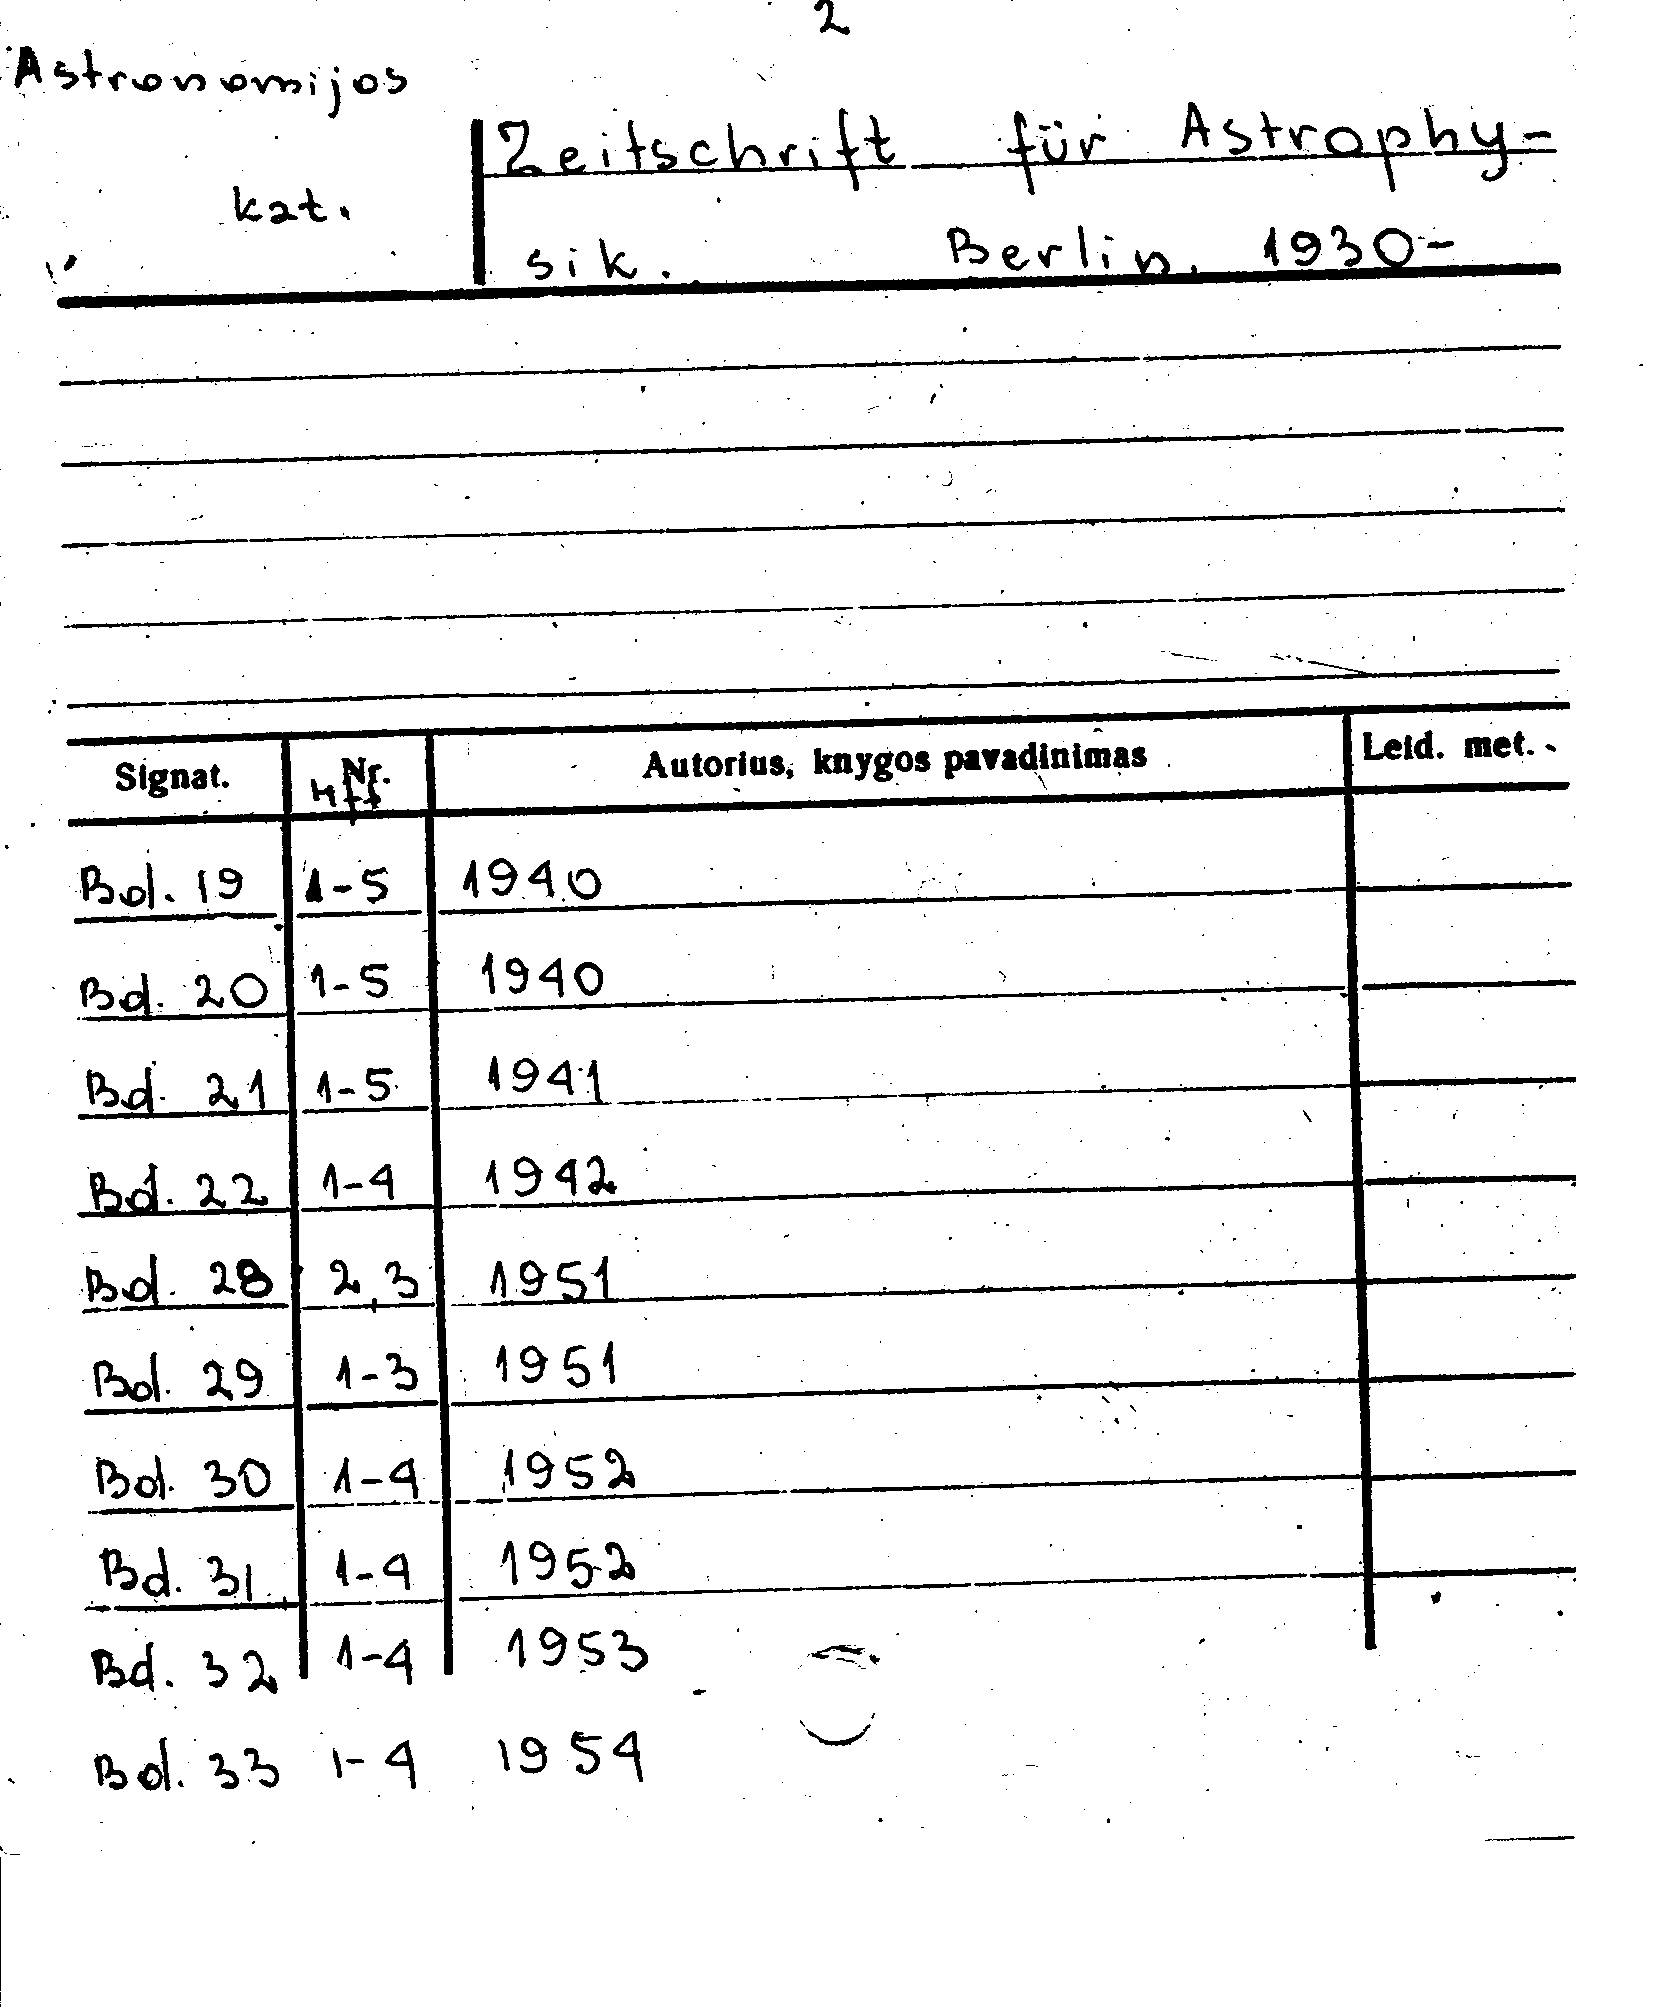 2
Astronomijos
kat.
Zeitschrift für Astrophy-
sik. Berlin. 1930-
Signat. Nr. Hft Autorius, knygos pavadinimas Leid. met.
Bd. 19 1-5 1940
Bd. 20 1-5 1940
Bd. 21 1-5 1941
Bd. 22 1-4 1942
Bd. 28 2,3 1951
Bd. 29 1-3 1951
Bd. 30 1-4 1952
Bd. 31 1-4 1952
Bd. 32 1-4 1953
Bd. 33 1-4 1954